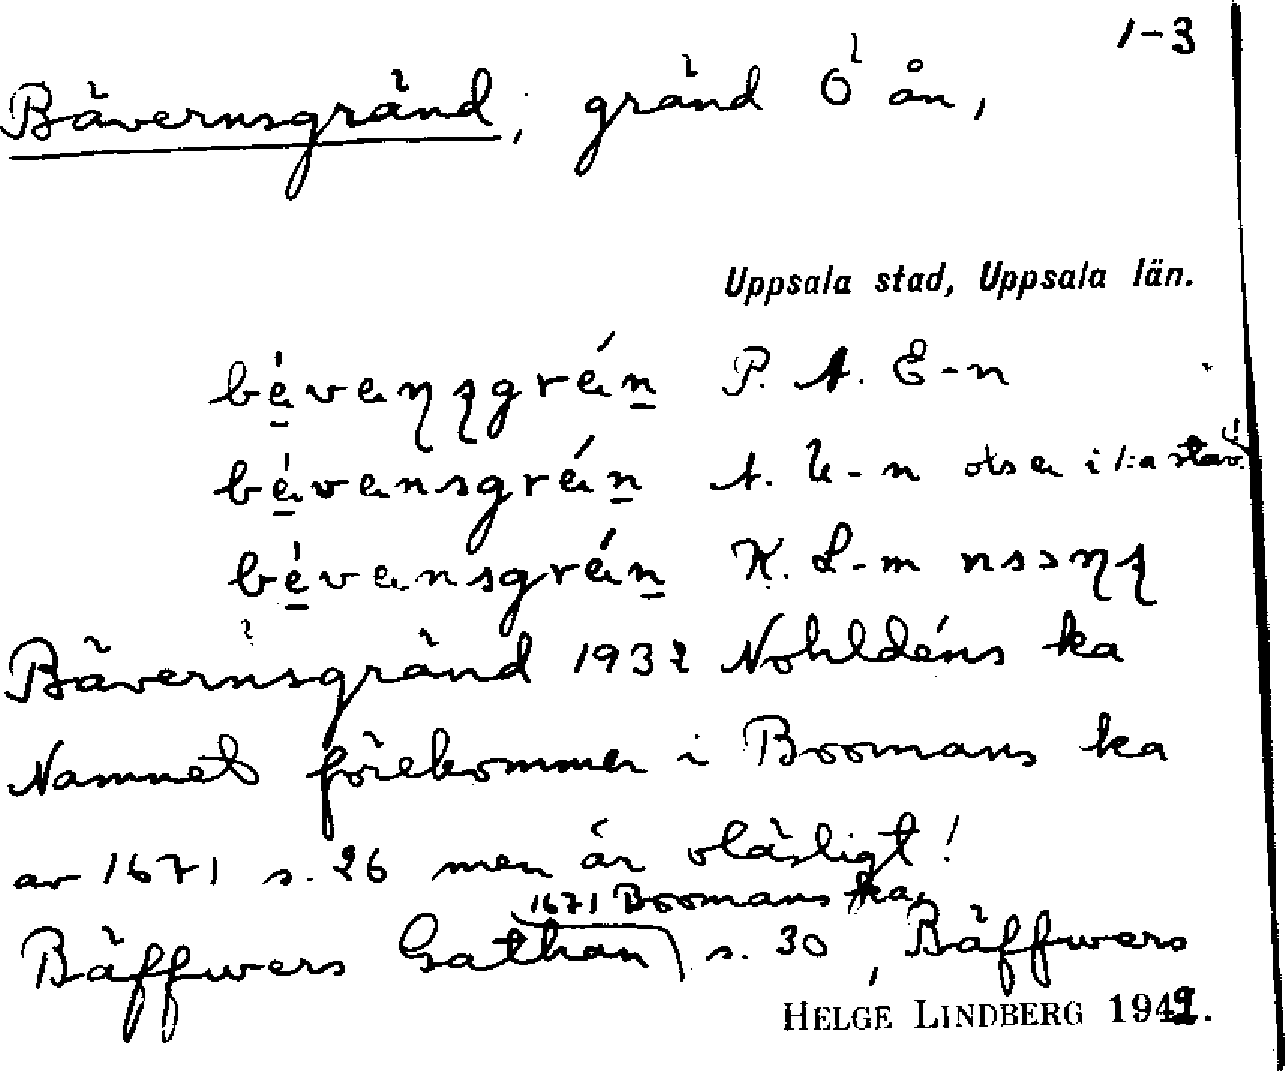 1-3
Bävernsgränd, gränd Ö ån,
Uppsala stad, Uppsala län.
P. A. E-n
A. U-n i 1:a stav.
K. L-m
Bävernsgränd 1932 Nohldéns ka
Namnet förekommer i Boomans ka
av 1671 s. 26 men är oläsligt!
1671 Boomans ka,
Bäffwers Gathan s. 30, Bäffwers
HELGE LINDBERG 1942.